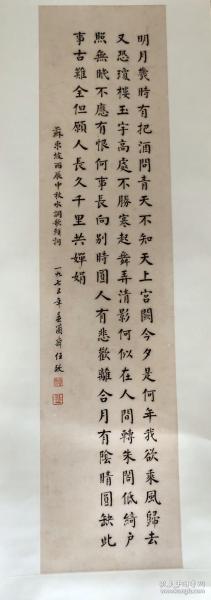 明月幾時有把酒問青天不知天上宮闕今夕是何年我欲乘風歸去
又恐瓊樓玉宇高處不勝寒起舞弄清影何似在人間轉朱閣低綺戶
照無眠不應有恨何事長向別時圓人有悲歡離合月有陰晴圓缺此
事古難全但願人長久千里共嬋娟
蘇東坡丙辰中秋水調歌頭詞
一九七五年 任政